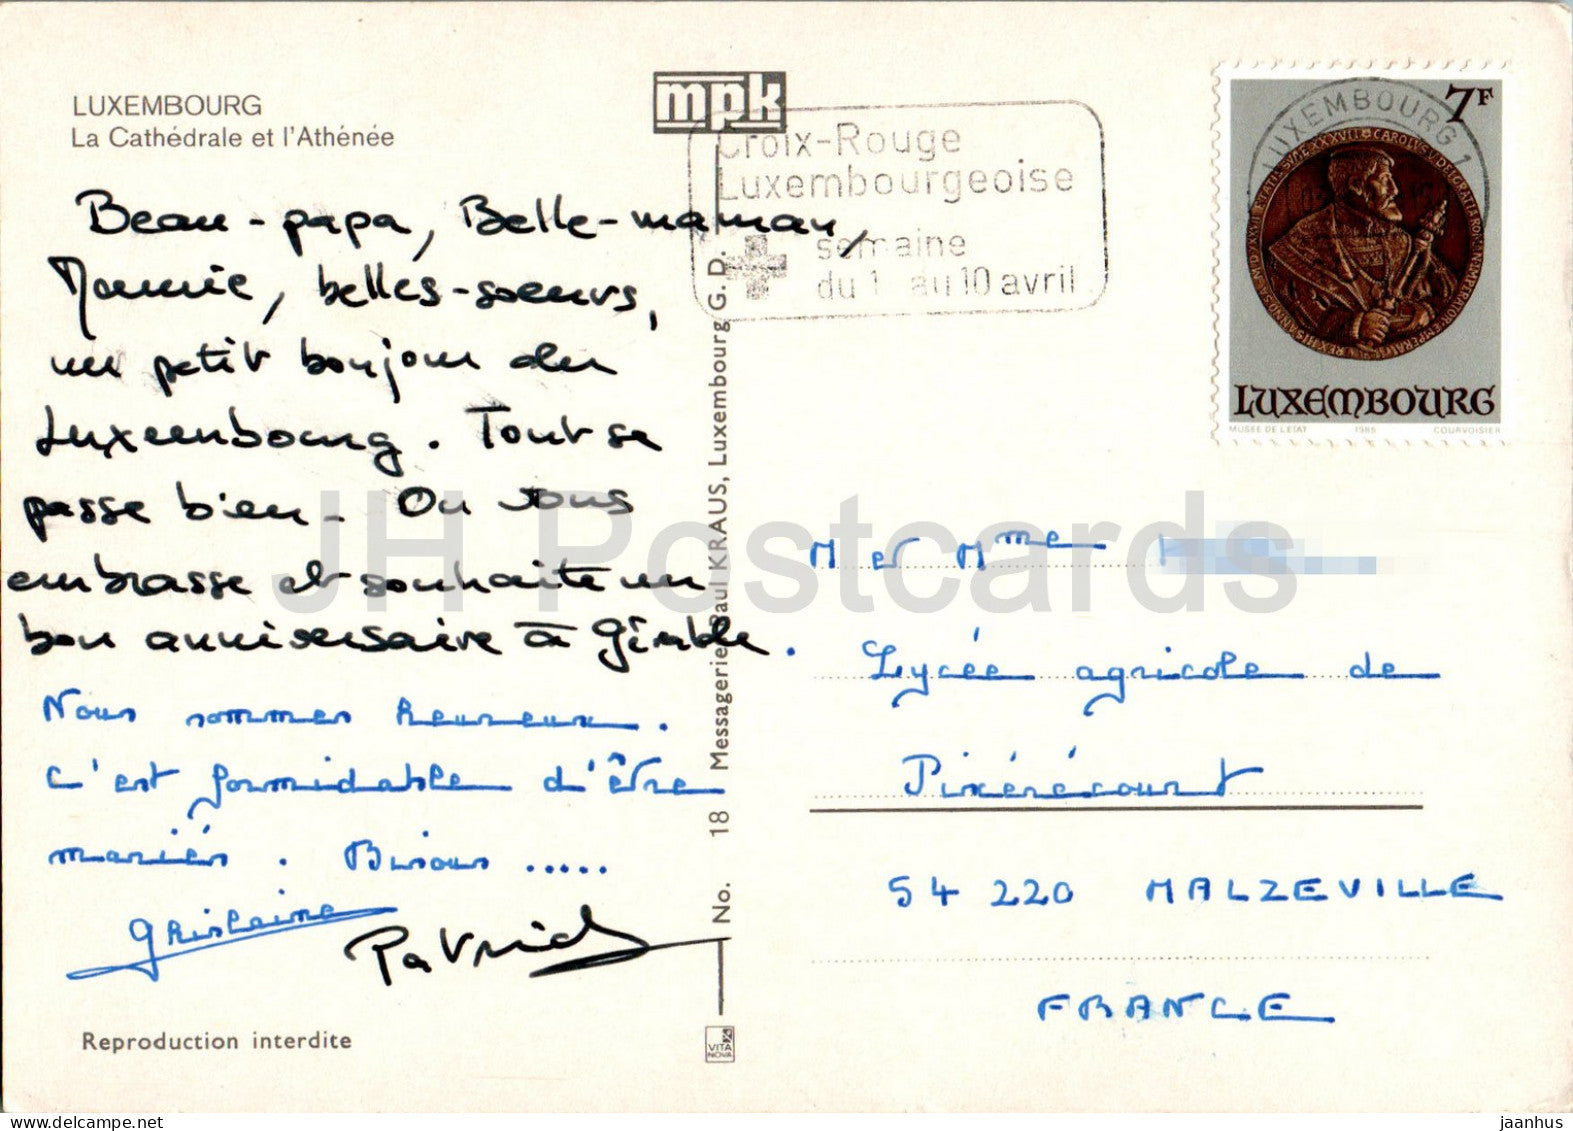 LUXEMBOURG
La Cathédrale et l'Athénée
mpk
Croix-Rouge
Luxembourgeoise
semaine
du 1 au 10 avril
LUXEMBOURG 1
7F
CAROLVS V DEI GRATIA ROMAN
LUXEMBOURG
MUSEE DE L'ETAT 1985 COURVOISIER
Beau-papa, Belle-maman,
Mamie, belles-soeurs,
un petit bonjour du
Luxembourg. Tout se
passe bien. On vous
embrasse et souhaite un
bon anniversaire à
Nous sommes heureux.
C'est formidable d'être
mariés. Bisous .....
Ghislaine
Patrick
Reproduction interdite
No. 18 Messagerie Paul KRAUS, Luxembourg G. D.
VITA
NOVA
M et Mme
Lycée agricole de
Pixérécourt
54 220 MALZEVILLE
FRANCE
JH Postcards
jaanhus @ delcampe.net